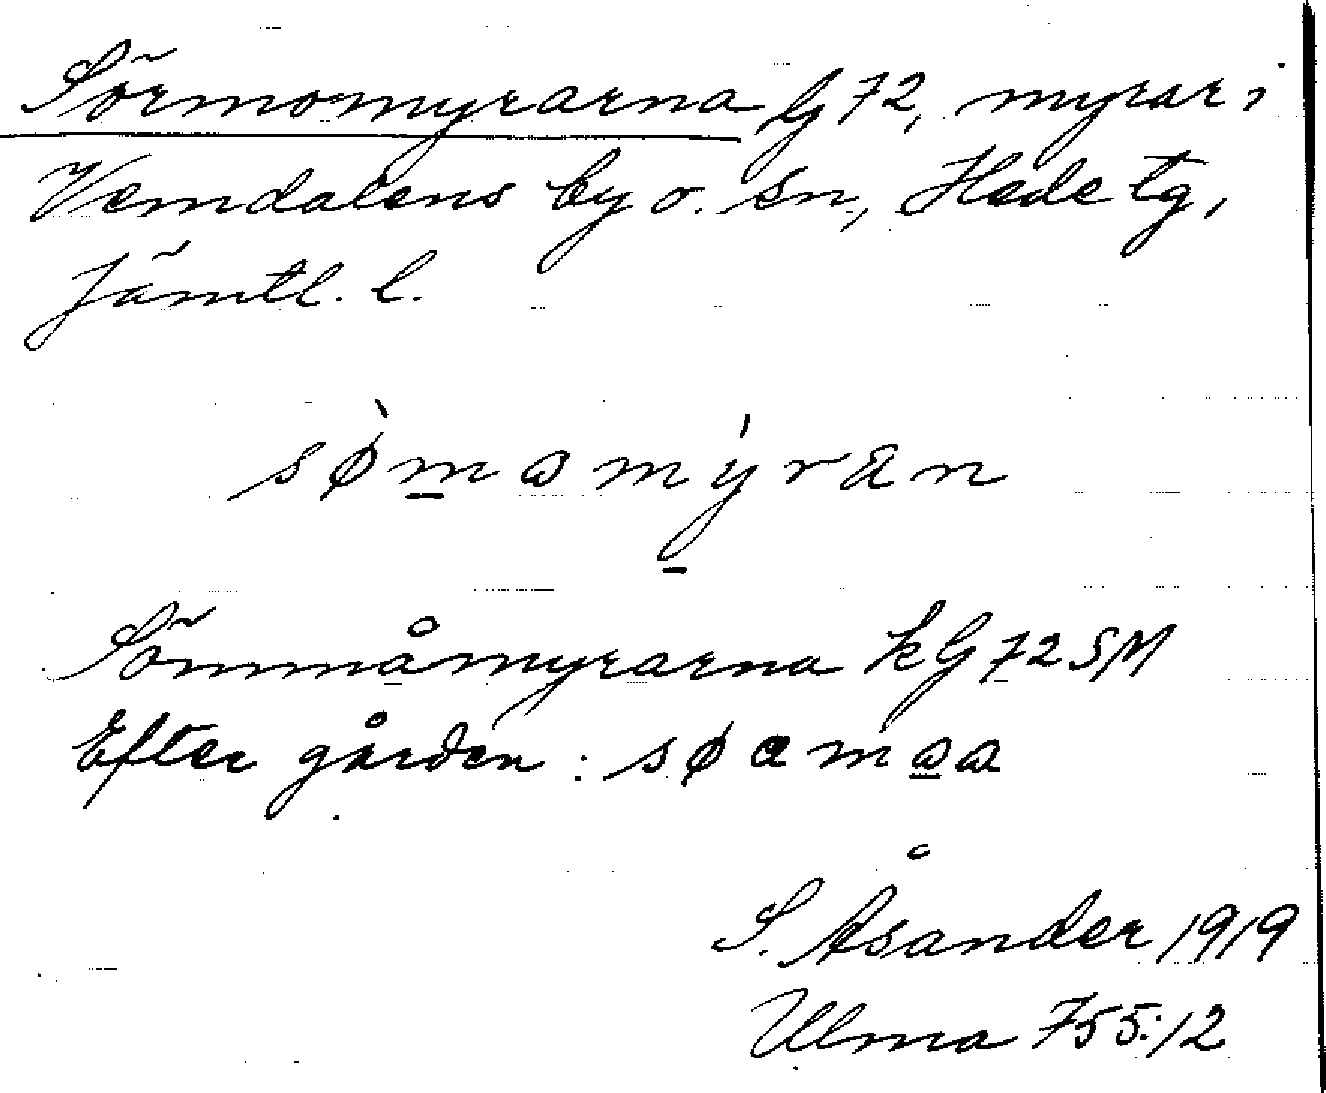 Sörmomyrarna G 72, myrar i
Vemdalens by o. sn, Hede tg,
Jämtl. l.
sømamyran
Sömmåmyrarna kG 72 SM
Efter gården: søamaa
S. Åsander 1919
Ulma 755:12